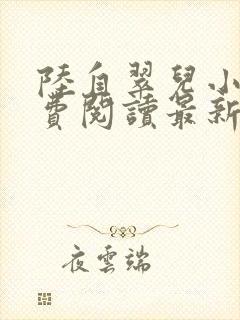 陸自翠兒小
費閱讀最新
夜雲端